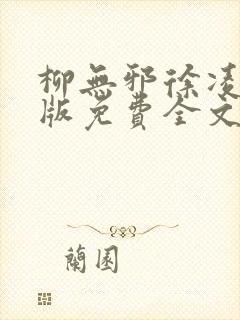 柳無邪徐凌
版免費全文
蘭園